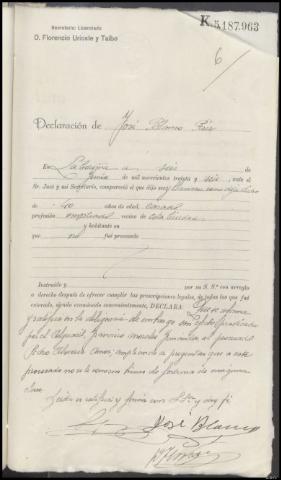 Secretario: Licenciado
D. Florencio Urioste y Taibo
K.5187.963
6/
Declaración de José Blanco
En La Coruña a seis de
Junio de mil novecientos treinta y seis, ante el
Sr. Juez y mi Secretario, compareció el que dijo
de 40 años de edad, casado
profesión empleado vecino de esta Ciudad
y habitante en
que no fué procesado
Instruído y por su S.ª con arreglo
a derecho después de ofrecer cumplir las prescripciones legales, de todas las que fué
enterado, siendo examinado convenientemente, DECLARA: Que se afirma
y ratifica en la diligencia de embargo
por el Alguacil, Francisco al procesado
Pedro a preguntas que a este
procesado no se le conocen bienes de fortuna de ninguna
clase
Leída se ratifica y firma con S.Sª y doy fé
José Blanco